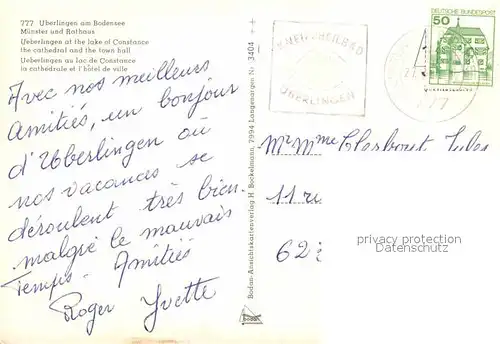 777 Überlingen am Bodensee
Münster und Rathaus
Ueberlingen at the lake of Constance
the cathedral and the town hall
Ueberlingen au lac de Constance
la cathédrale et l'hôtel de ville
Avec nos meilleurs
Amitiés, un bonjour
d'Uberlingen où
nos vacances se
déroulent très bien.
malgré le mauvais
Temps. Amitiés
Roger Yvette
Bodan-Ansichtskartenverlag H. Bockelmann, 7994 Langenargen Nr. 3404
KNEIPPHEILBAD
ÜBERLINGEN
777
50
DEUTSCHE BUNDESPOST
Mr Mme Jules
11 ru
62
privacy protection
Datenschutz